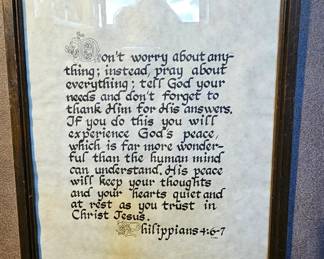 Don't worry about any-
thing; instead, pray about
everything; tell God your
needs and don't forget to
thank Him for His answers.
If you do this you will
experience God's peace,
which is far more wonder-
ful than the human mind
can understand. His peace
will keep your thoughts
and your hearts quiet and
at rest as you trust in
Christ Jesus.
Philippians 4:6-7